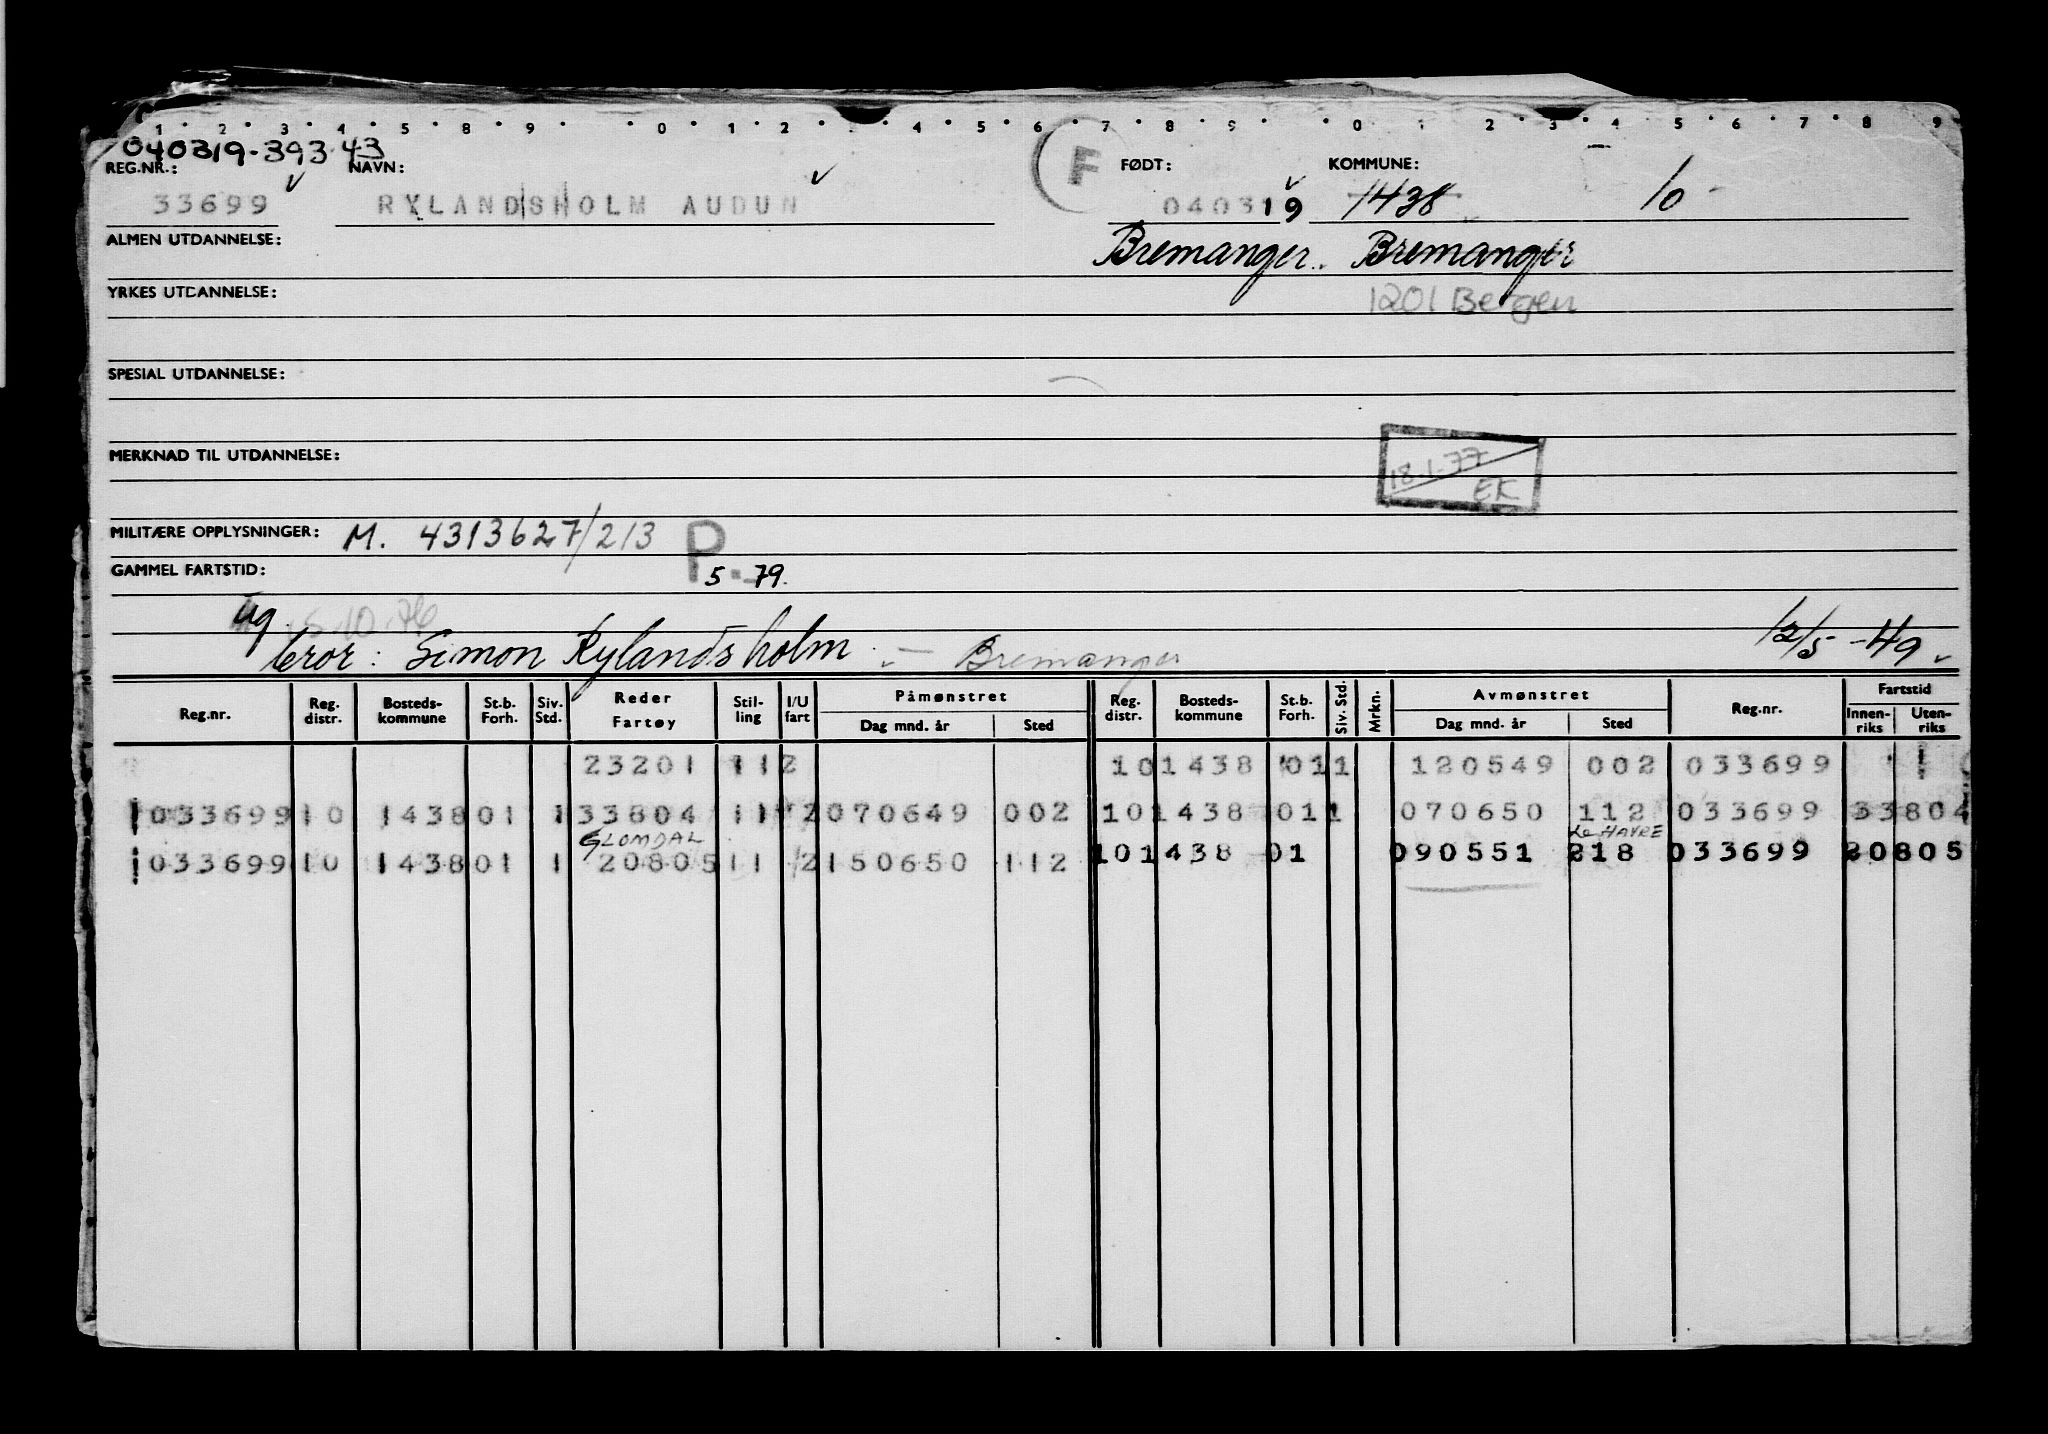 1 2 3 4 5 8 9 0 1 2 3 4 5 6 7 8 9 0 1 2 3 4 5 6 7 8 9
040319-393 43
REG.NR.: NAVN: F FØDT: KOMMUNE:
33699 RYLANDSHOLM AUDUN 040319 1438 10
ALMEN UTDANNELSE: Bremanger. Bremanger
YRKES UTDANNELSE: 1201 Bergen
SPESIAL UTDANNELSE:
MERKNAD TIL UTDANNELSE: 18.1.77
EK
MILITÆRE OPPLYSNINGER: M. 4313627/213 P
GAMMEL FARTSTID: 5-79.
ug. 5.10.76
bror: Simon Rylandsholm - Bremanger 12/5-49
Reg.nr. Reg. distr. Bosteds-kommune St.b. Forh. Siv. Std. Reder Fartøy Stil-ling I/U fart Påmønstret Dag mnd. år Sted Reg. distr. Bosteds-kommune St.b. Forh. Siv. Std. Mrkn. Avmønstret Dag mnd. år Sted Reg.nr. Fartstid Innen-riks Uten-riks
23201 11 2 10 1438 01 1 120549 002 033699
033699 10 1438 01 1 33804 11 2 070649 002 10 1438 01 1 070650 112 033699 33804
GLOMDAL Le HAVRE
033699 10 1438 01 1 20805 11 2 150650 112 10 1438 01 090551 218 033699 20805